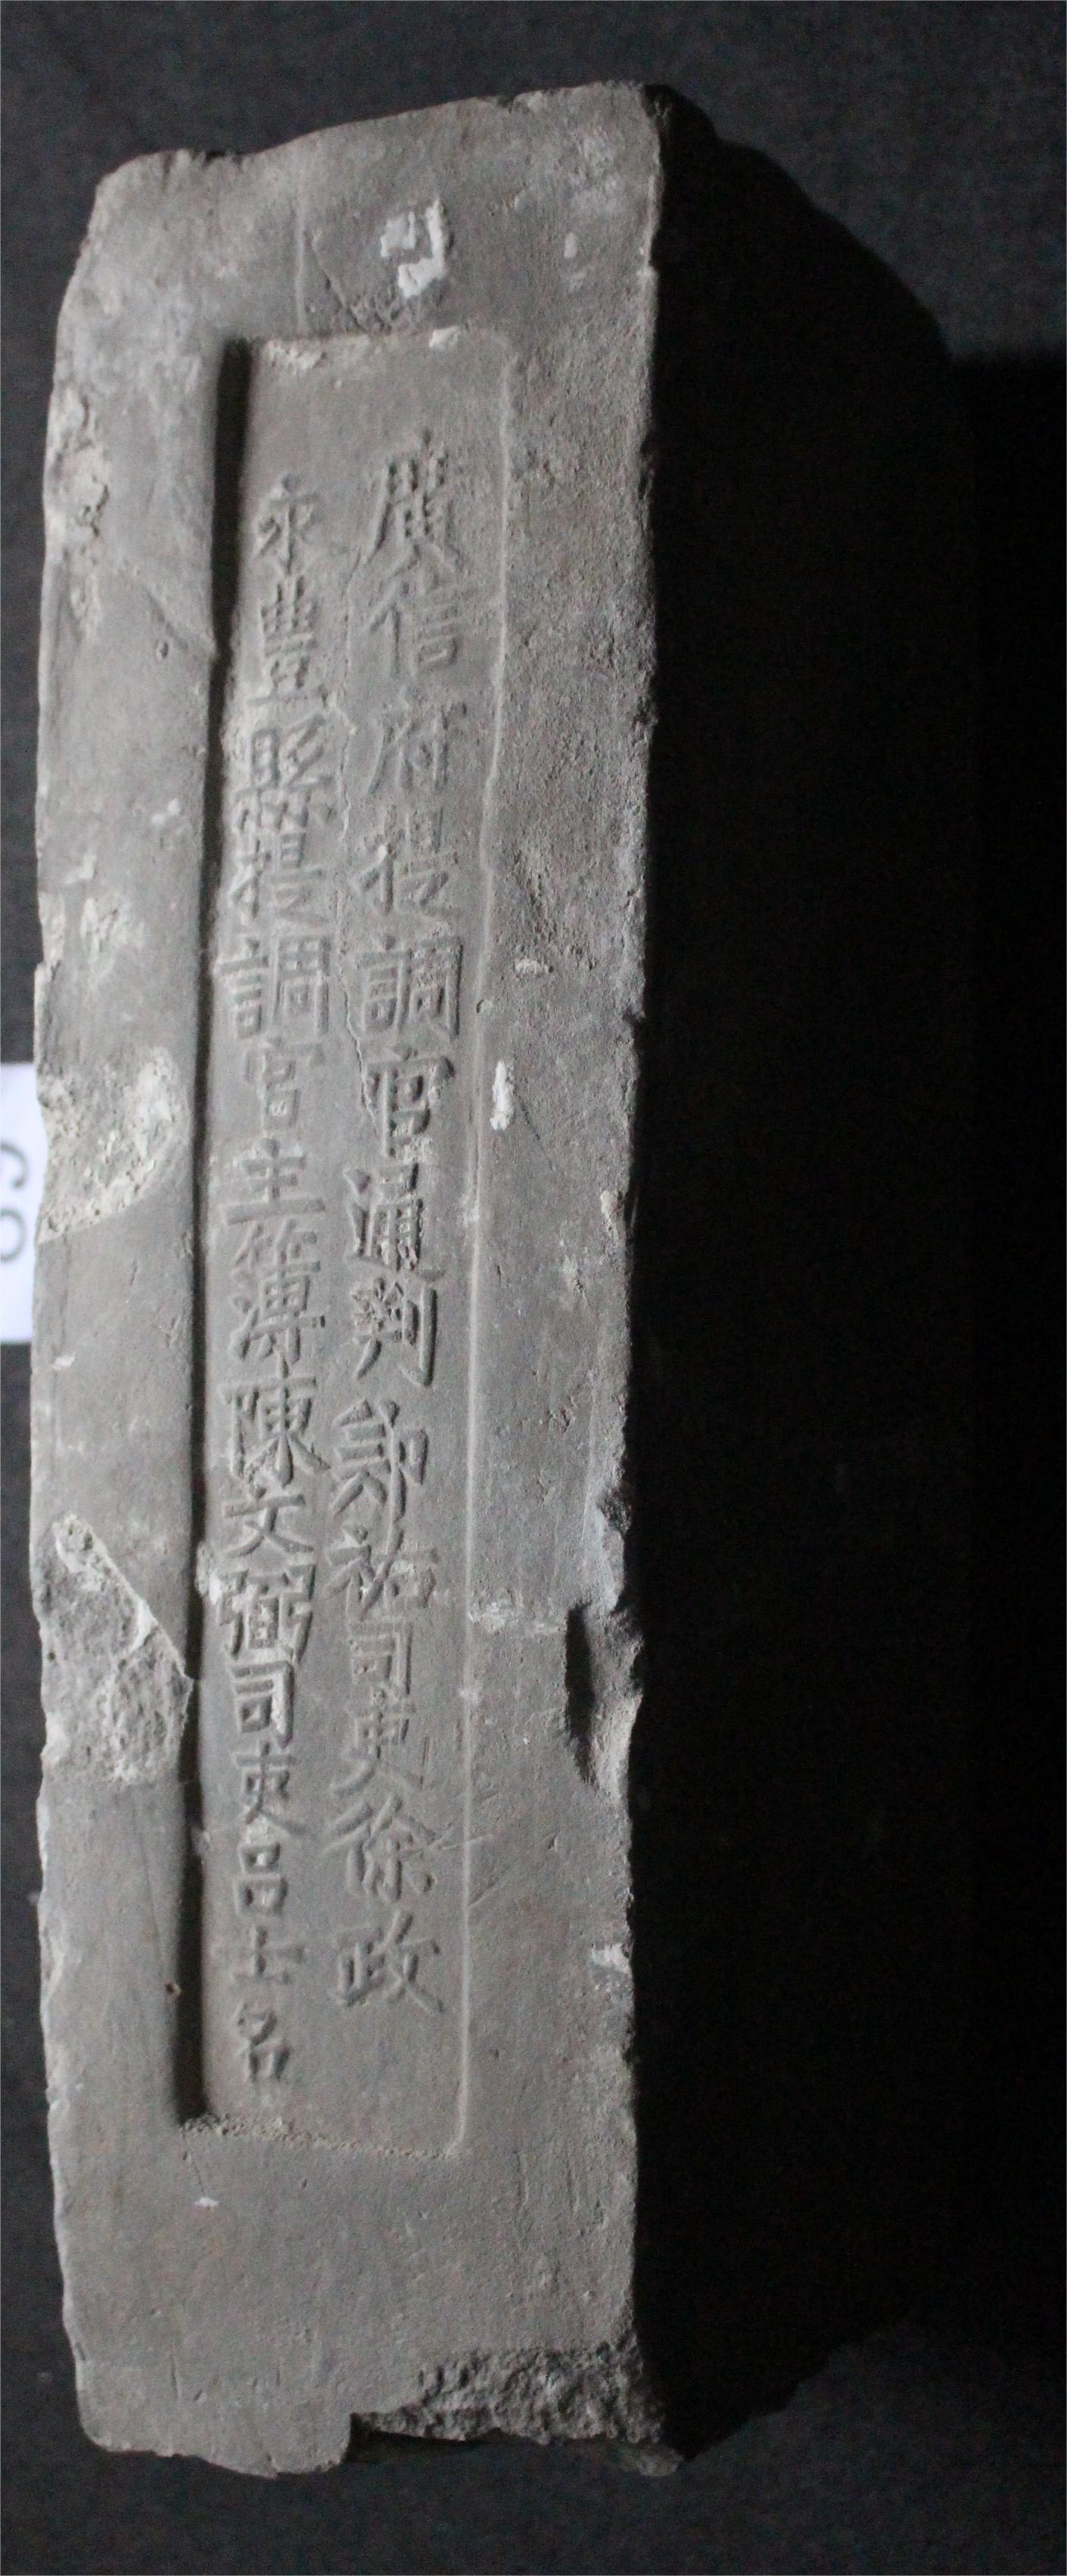 廣信府提調官通判貳祐司吏徐政
永豐縣提調官主簿陳文彌司吏呂士名